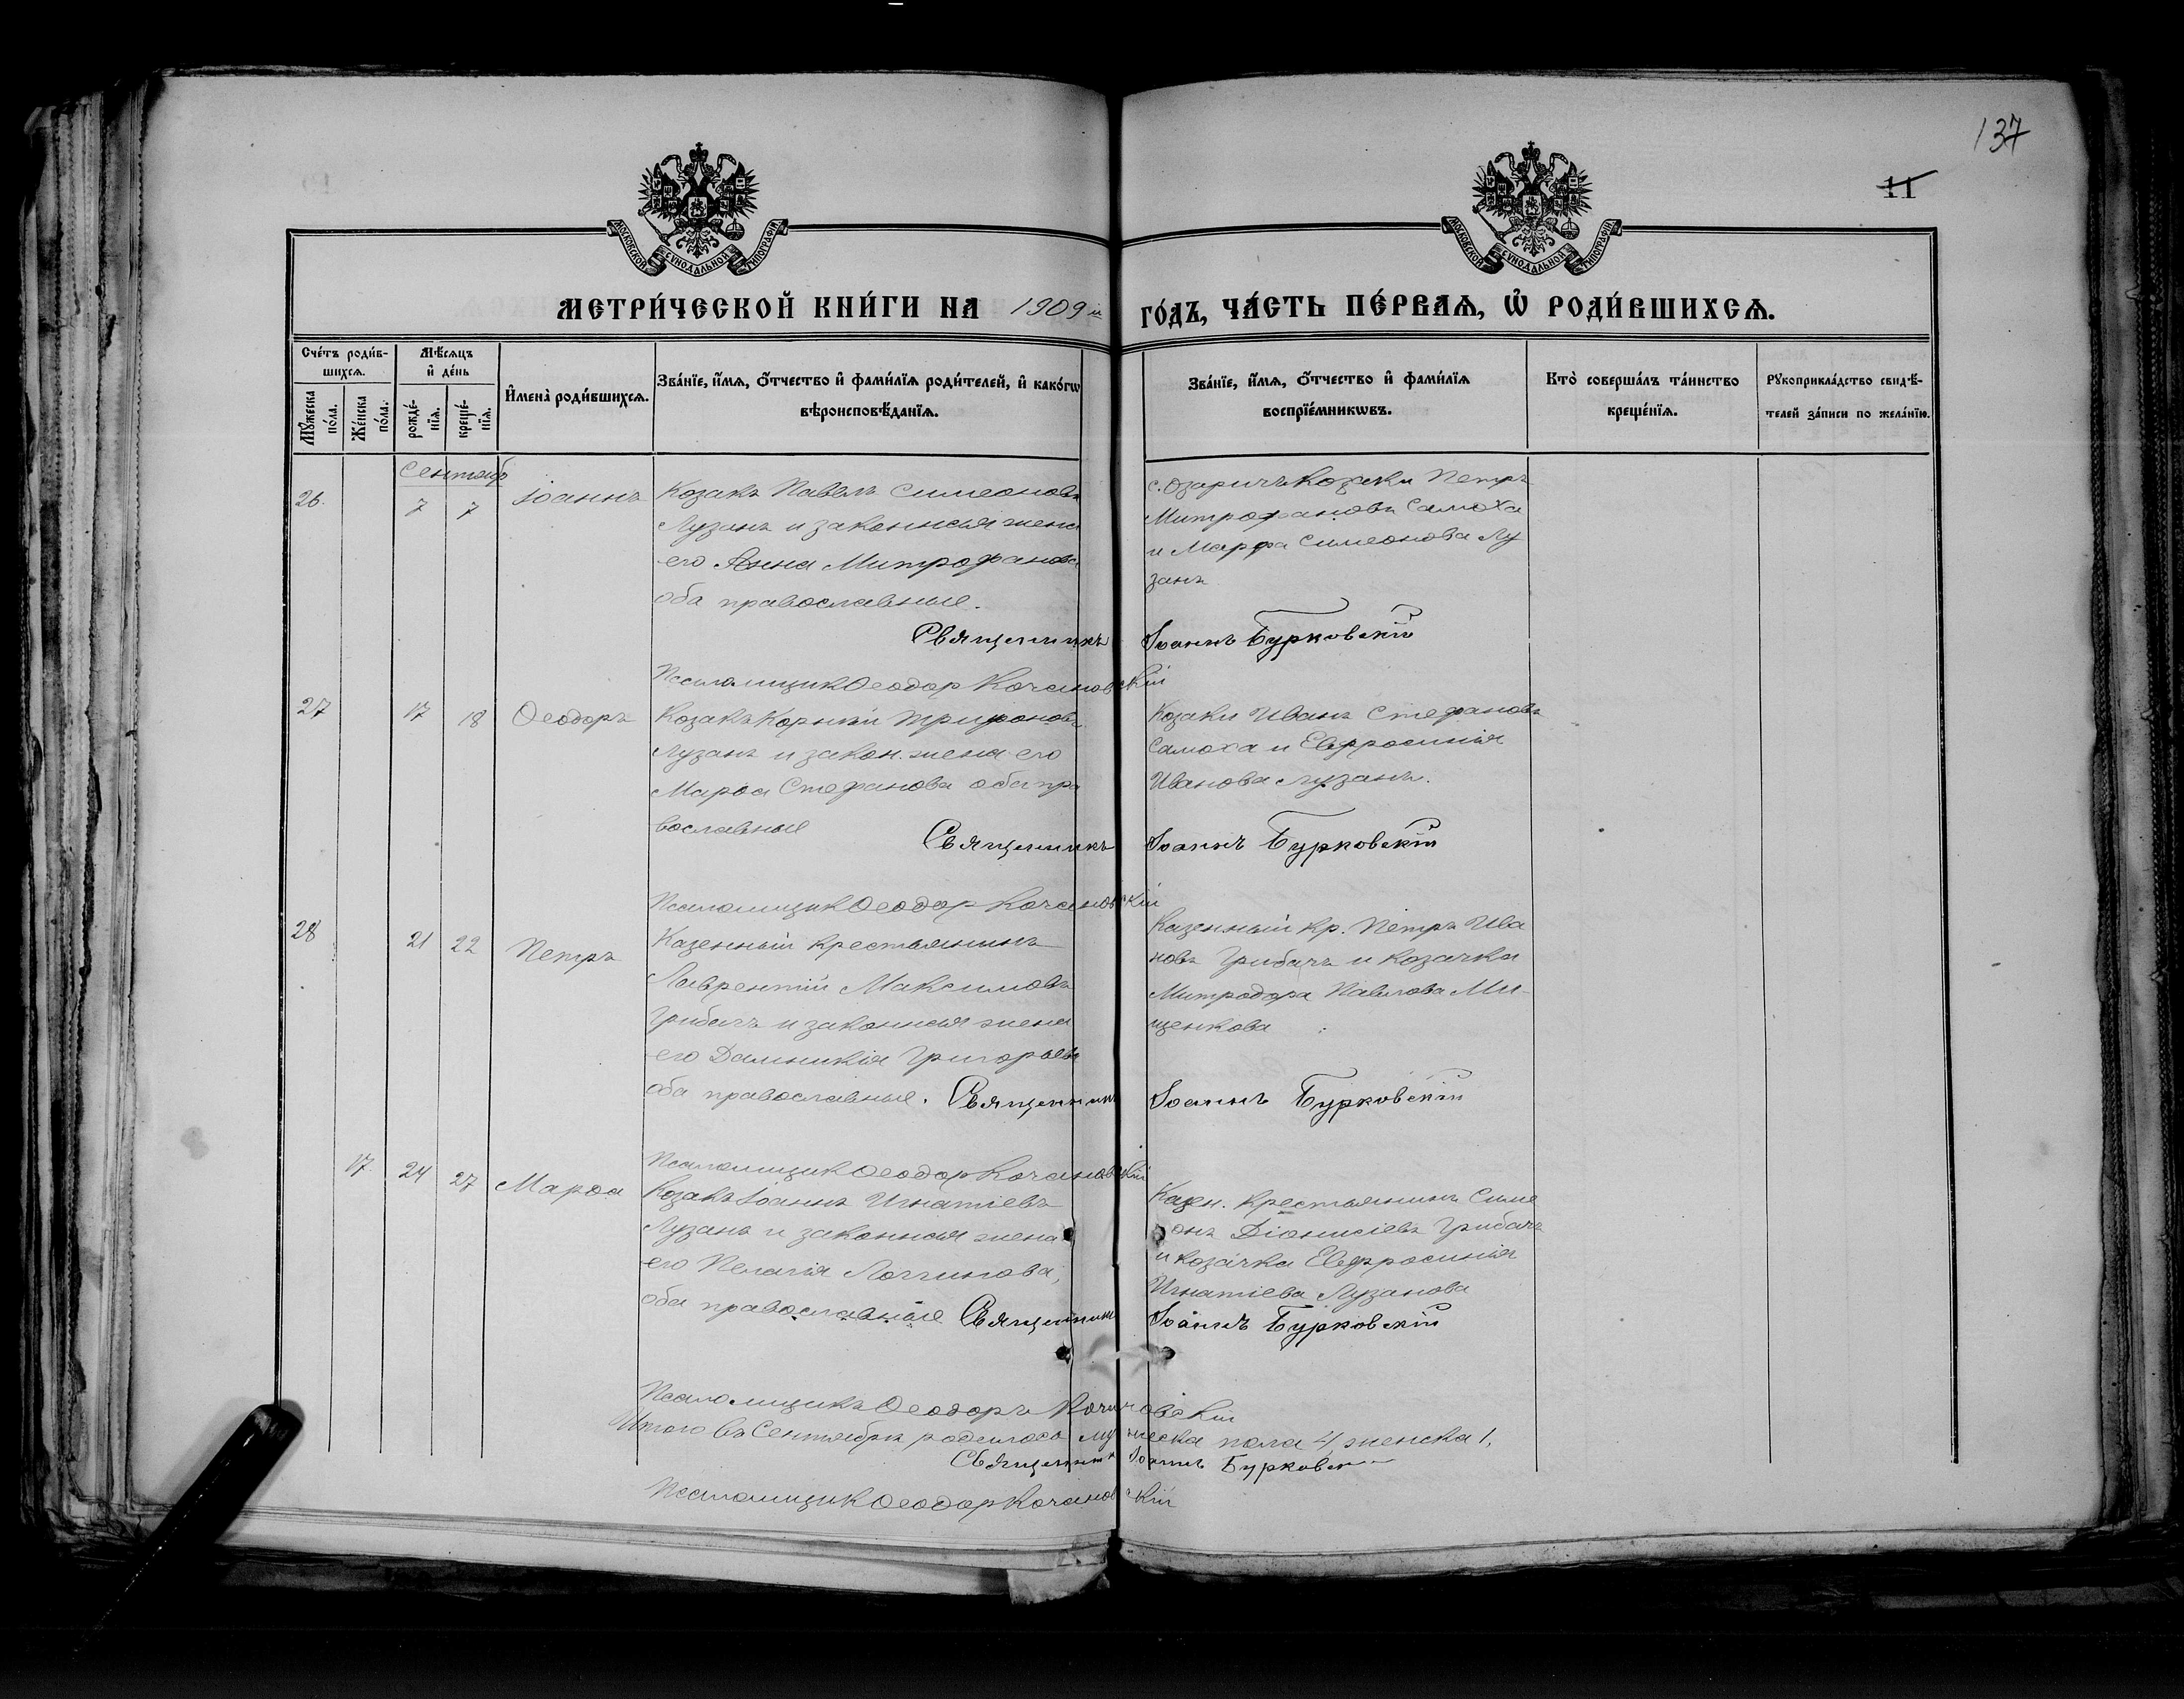 137
11
МОСКОВСКОЙ СѴНОДАЛЬНОЙ ТИПОГРАФІИ
МОСКОВСКОЙ СѴНОДАЛЬНОЙ ТИПОГРАФІИ
МЕТРИ́ЧЕСКОЙ КНИ́ГИ НА 1909 й ГО́ДЪ, ЧА́СТЬ ПЕ́РВАѦ, Ѡ҆ РОДИ́ВШИХСѦ.
Сче́тъ роди́в-
шихсѧ.
Мꙋ́жеска по́ла.
Же́нска по́ла.
Мѣ́сѧцъ
и҆ де́нь
рожде́-
нїѧ.
креще́-
нїѧ.
И҆мена̀ роди́вшихсѧ.
Зва́нїе, и҆́мѧ, ѻ҆́тчество и҆ фами́лїѧ роди́телей, и҆ како́гѡ
вѣроисповѣ́данїѧ.
Зва́нїе, и҆́мѧ, ѻ҆́тчество и҆ фами́лїѧ
воспрїе́мникѡвъ.
Кто̀ соверша́лъ та́инство
креще́нїѧ.
Рꙋкоприкла́дство свидѣ́-
телей за́писи по жела́нїю.
Сентябр
26. 7 7 Іоаннъ
Козакъ Павелъ Симеоновъ
Лузанъ и законная жена
его Анна Митрофанова
оба православные.
с. Озаричъ козаки Петръ
Митрофановъ Самоха
и Марфа Симеонова Лу
занъ
Священникъ Іоаннъ Бурковскій
Псаломщик Ѳеодор Кочановскій
27 17 18 Ѳеодоръ
Козакъ Корнилій Трифоновъ
Лузанъ и закон. жена его
Марѳа Стефанова оба пра
вославные
Козаки Иванъ Стефановъ
Самоха и Евфросинія
Иванова Лузанъ.
Священникъ Іоаннъ Бурковскій
Псаломщик Ѳеодор Кочановскій
28 21 22 Петръ
Казенный крестьянинъ
Лаврентій Максимовъ
Грибачъ и законная жена
его Домникія Григорьева
оба православные.
Казенный кр. Петръ Ива
новъ Грибачъ и козачка
Митродора Павлова Ми-
щенкова
Священник Іоаннъ Бурковскій
Псаломщик Ѳеодор Кочановскій
17. 24 27 Марѳа
Козакъ Іоаннъ Игнатіевъ
Лузанъ и законная жена
его Пелагія Логгинова,
оба православные
Казен. крестьянинъ Симе
онъ Діонисіевъ Грибачъ
и козачка Евфросинія
Игнатіева Лузанова
Священник Іоаннъ Бурковскій
Псаломщикъ Ѳеодоръ Кочановскій
Итого въ Сентябрѣ родилось мужеска пола 4, женска 1,
Священник Іоаннъ Бурковск
Псаломщик Ѳеодор Кочановскій